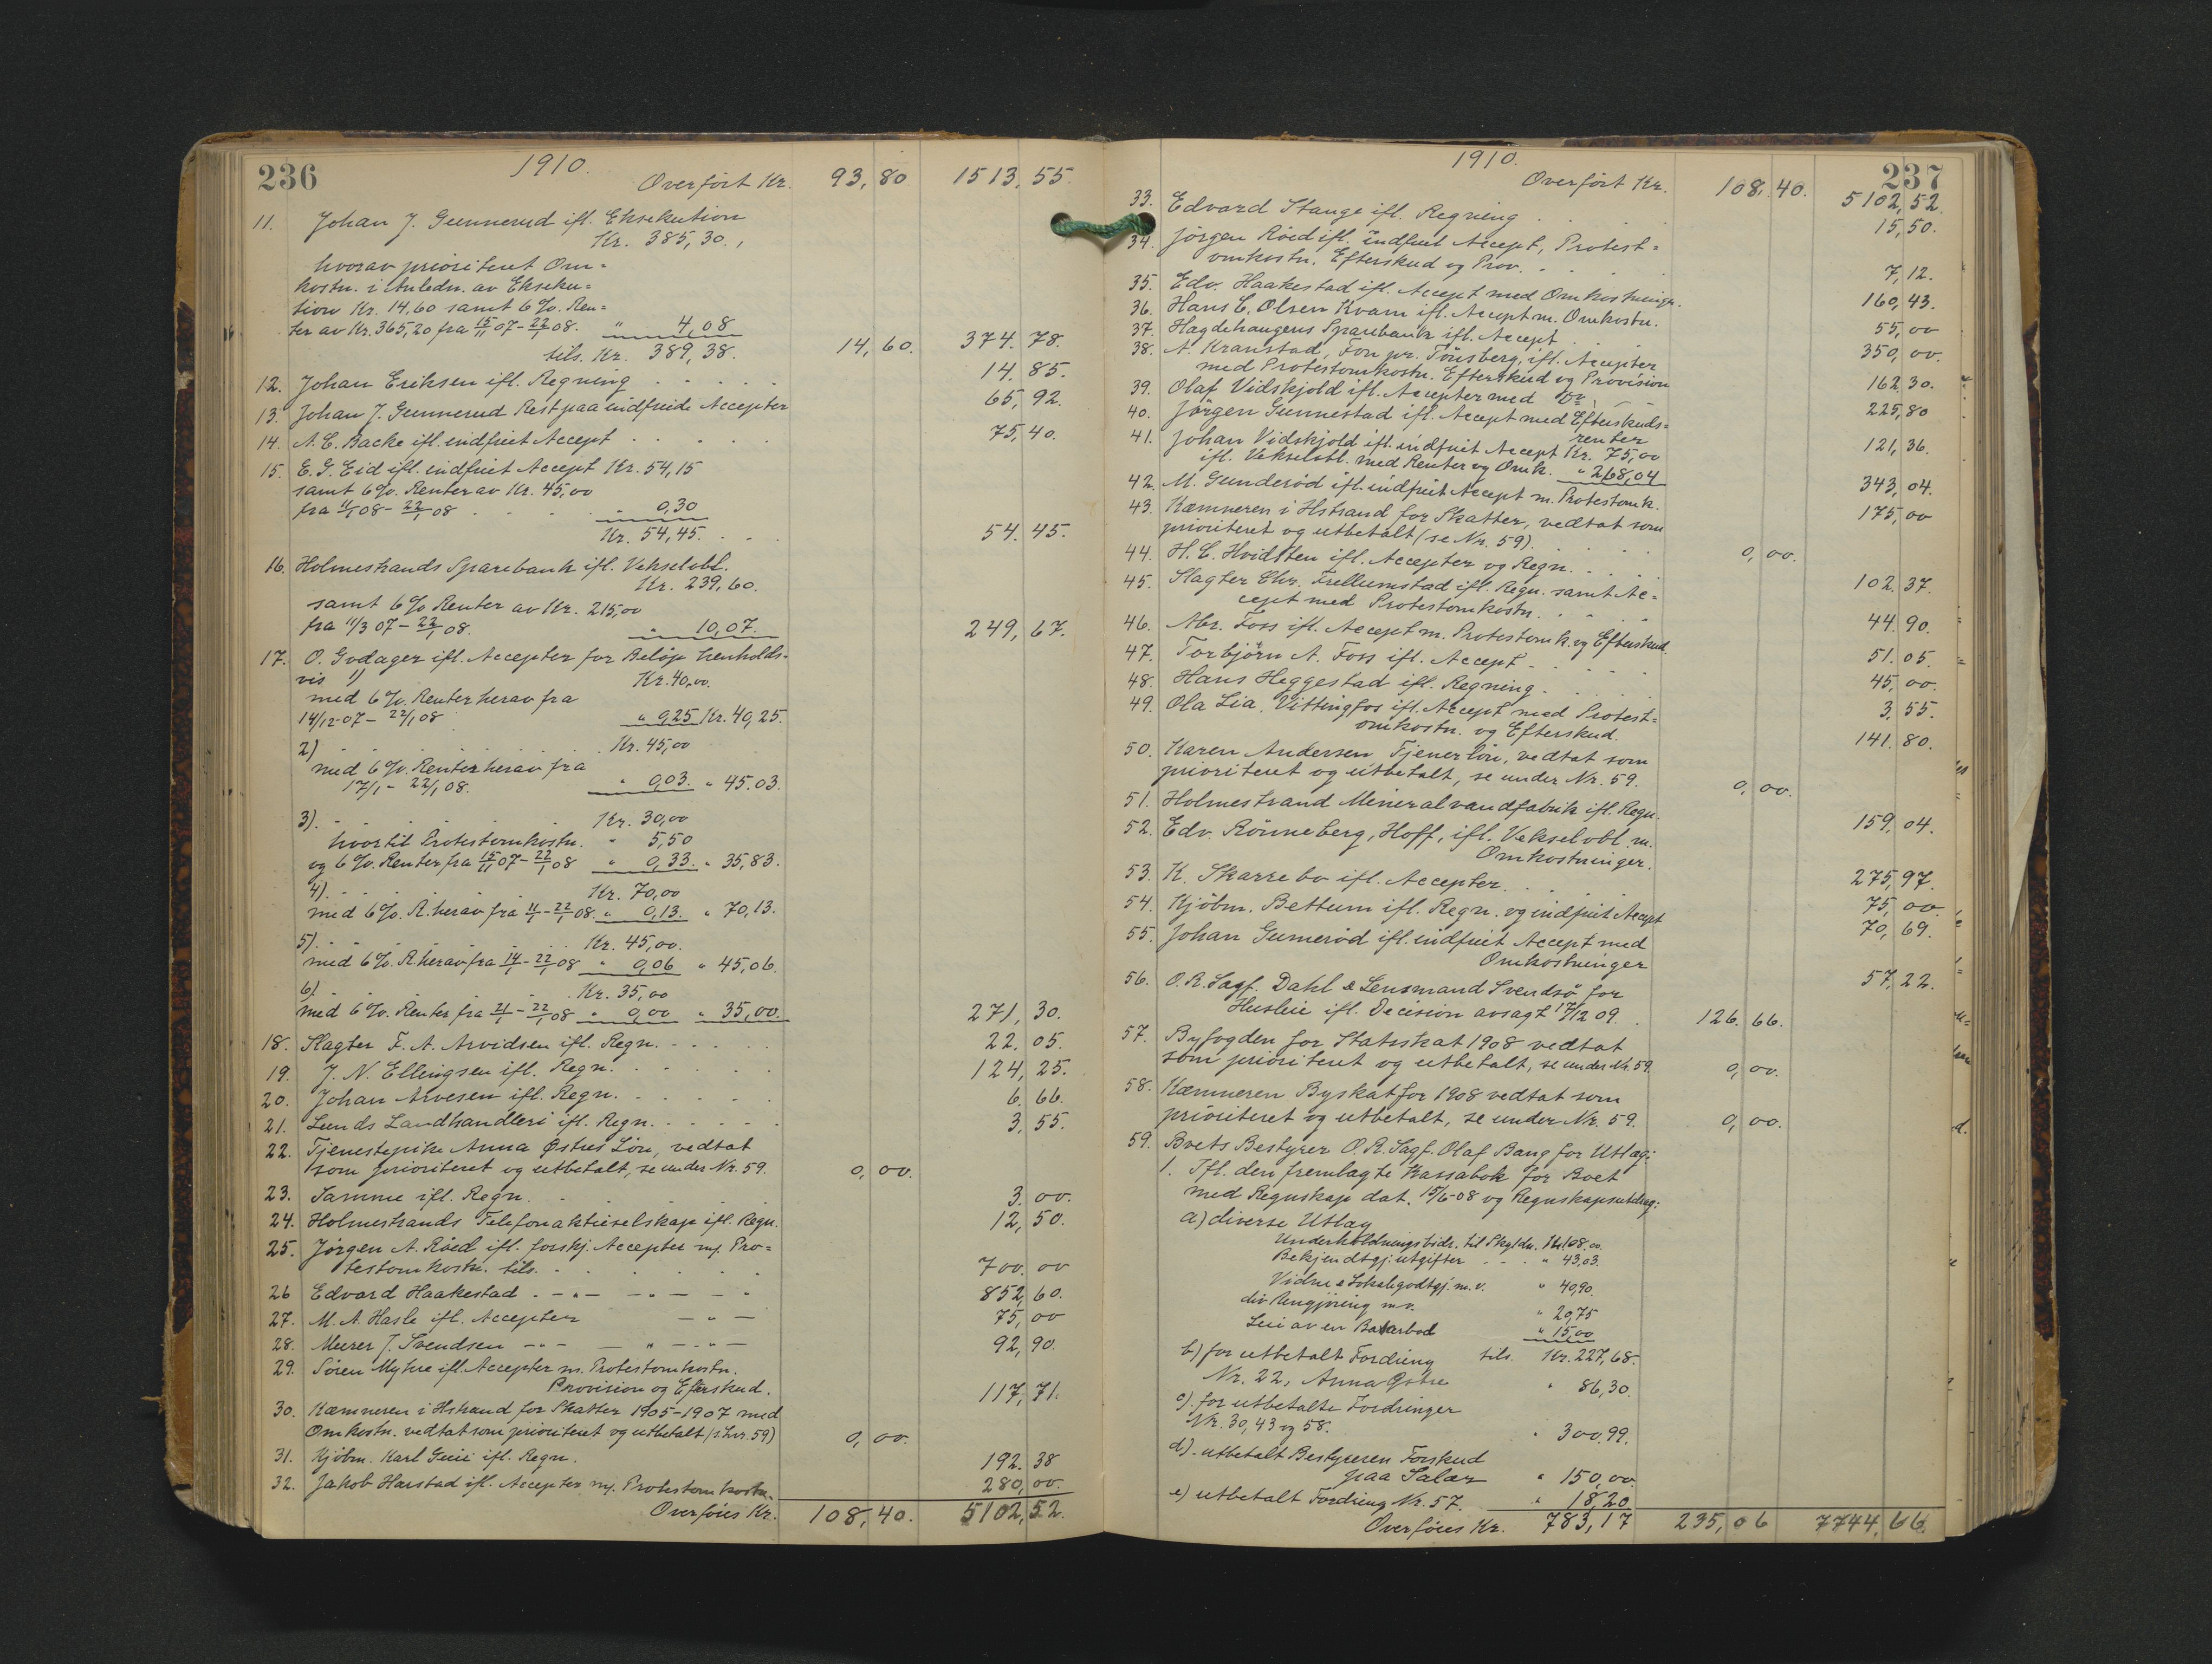 236
1910.
Overført Kr. 93,80 1513,55.
11. Johan J. Gunnerud ifl. Eksekution
Kr. 385,30.,
hvorav prioritert Om=
kostn. i Anledn. av Ekseku=
tion Kr. 14,60 samt 6%. Ren=
ter av Kr. 365,20 fra 15/11 07 - 22/1 08. " 4,08
tils. Kr. 389,38. 14,60. 374.78.
12. Johan Eriksen ifl. Regning . . . . . 14.85.
13. Johan J. Gunnerud Rest paa indfriede Accepter 65,92.
14. A. C. Backe ifl. indfriet Accept . . . . . 75,40.
15. E. G. Eid ifl. indfriet Accept Kr. 54,15
samt 6%. Renter av Kr. 45,00
fra 11/1 08 - 22/1 08 . . . . " 0,30
Kr. 54,45. . . 54.45.
16. Holmestrands Sparebank ifl. Vekselobl.
Kr. 239,60.
samt 6% Renter av Kr. 215,00
fra 11/3 07 - 22/1 08. " 10,07. 249,67.
17. O. Godager ifl. Accepter for Beløp henholds-
vis 1) Kr. 40,00.
med 6%. Renter herav fra
14/12-07 - 22/1 08 " 0,25 Kr. 40,25.
2) . . . . . Kr. 45,00
med 6%. Renter herav fra
17/1 - 22/1 08. " 0,03. " 45.03.
3). . . . . Kr. 30,00
hvortil Protestomkostn. " 5,50
og 6%. Renter fra 15/11 07 - 22/1 08 " 0,33. " 35,83.
4). . . . . Kr. 70,00
med 6%. R. herav fra 11/1 - 22/1 08. " 0,13. " 70,13.
5). . . . . Kr. 45,00.
med 6%. R. herav fra 14/1 - 22/1 08 " 0,06 " 45,06.
6) . . . . . Kr. 35,00
med 6%. Renter fra 21/1 - 22/1 08 " 0,00 " 35,00. 271,30.
18. Slagter F. A. Arvidsen ifl. Regn. . . . . 22.05.
19. J. N. Ellingsen ifl. Regn. . . . . . 124,25.
20. Johan Arvesen ifl. Regn. . . . . . 6.66.
21. Lunds Landhandleri ifl. Regn. . . . . 3,55.
22. Tjenestepike Anna Østres Løn, vedtat
som prioriteret og utbetalt, se under Nr. 59. 0,00.
23. Samme ifl. Regn. . . . . . 3.00.
24. Holmestrands Telefonaktieselskap ifl. Regn. 12,50.
25. Jørgen A. Røed ifl. forskj. Accepter m/. Pro=
testomkostn. tils. . . . . . 700.00
26 Edvard Haakestad . - " - - " - - " 852,60.
27. M. A. Hasle ifl. Accepter - " - 75,00
28. Murer J. Svendsen - " - - " - " - 92,90.
29. Søren Myhre ifl. Accepter m. Protestomkostn.
Provision og Efterskud. 117,71.
30. Kæmneren i Hstrand for Skatter 1905-1907 med
Omkostn. vedtat som prioriteret og utbetalt (s. Lnr. 59) 0,00.
31. Kjøbm. Karl Guii ifl. Regn. 192.38
32. Jakob Harstad ifl. Accepter m/. Protestomkostn. 280,00.
Overføres Kr. 108,40. 5102,52.
1910.
237
Overført Kr. 108,40. 5102,52.
33. Edvard Stange ifl. Regning . . . 15,50.
34. Jørgen Røed ifl. indfriet Accept, Protest=
omkostn. Efterskud og Prov. . . . 7,12.
35. Edv. Haakestad ifl. Accept med Omkostninger. 160,43.
36. Hans C. Olsen Kvam ifl. Accept m. Omkostn. 55,00
37. Hagdehaugens Sparebank ifl. Accept . . 350,00.
38. A. Kranstad, Fon pr. Tønsberg, ifl. Accepter
med Protestomkostn. Efterskud og Provision 162.30.
39. Olaf Vidskjold ifl. Accepter med Do 225,80
40. Jørgen Gunnestad ifl. Accept med Efterskuds=
renter 121,36.
41. Johan Vidskjold ifl. indfriet Accept Kr. 75,00
ifl. Vekselobl. med Renter og Omk. " 268,04 343,04.
42. M. Gunderød ifl. indfriet Accept m. Protestomk. 175,00
43. Kæmneren i Hstrand for Skatter, vedtat som
prioriteret og utbetalt (se Nr. 59). . . . 0,00.
44. H. C. Hvidsten ifl. Accepter og Regn. . . . 102.37.
45. Slagter Chr. Frellumstad ifl. Regn. samt Ac=
cept med Protestomkostn. . . . 44.90.
46. Abr. Foss ifl. Accept m. Protestomk. og Efterskud. 51.05.
47. Torbjørn A. Foss ifl. Accept - . . . 45,00.
48. Hans Heggestad ifl. Regning . . . . 3,55.
49. Ola Lia, Vittingfos ifl. Accept med Protest=
omkostn. og Efterskud. 141.80.
50. Karen Andersen Tjenerløn, vedtat som
prioriteret og utbetalt, se under Nr. 59. 0,00.
51. Holmestrand Mineralvandfabrik ifl. Regn. 159,04.
52. Edv. Rønneberg, Hoff, ifl. Vekselobl. m.
Omkostninger. 275,97.
53. K. Skarrebo ifl. Accepter. . . . 75,00.
54. Kjøbm. Bettum ifl. Regn. og indfriet Accept 70,69.
55. Johan Gumerød ifl. indfriet Accept med
Omkostninger 57,22.
56. O. R. Sagf. Dahl & Lensmand Svendsø for
Husleie ifl. Decision avsagt 17/12 09. . 126.66.
57. Byfogden for Statsskat 1908 vedtat
som prioriteret og utbetalt, se under Nr. 59. 0,00.
58. Kæmneren Byskat for 1908 vedtat som
prioriteret og utbetalt, se under Nr. 59. 0,00.
59. Boets Bestyrer O. R. Sagf. Olaf Bang for Utlæg:
1. Ifl. den fremlagte Kassabok for Boet
med Regnskap dat. 15/6-08 og Regnskapsutdrag:
a) diverse Utlæg
Underholdningsbidr. til Skyldn. Kr. 108.00
Bekjendtgj. utgifter . . . . " 43,03.
Vidne & Lokalegodtgj. m. v. " 40,90.
div Rengjøring m.v. " 20,75
Leie av en Basarbod " 15,00
tils. Kr. 227,68.
b) for utbetalt Fordring
Nr. 22, Anna Østre " 86,30.
c). for utbetalte Fordringer
Nr. 30, 43 og 58. " 300,99.
d). utbetalt Bestyreren Forskud
paa Salær " 150,00
e) utbetalt Fordring Nr. 57. " 18,20
Overføres Kr. 783,17 235,06 7744,66.